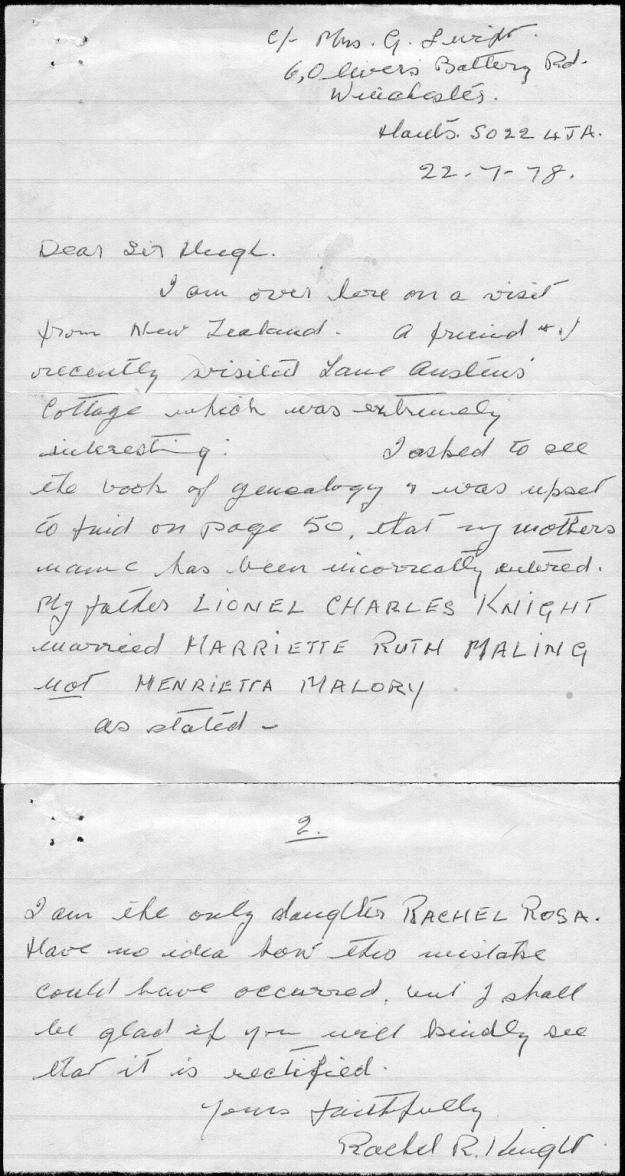 c/- Mrs. G. Swift.
6, Olivers Battery Rd.
Winchester.
Hants. SO22 4JA.
22-7-78.
Dear Sir Hugh.
I am over here on a visit
from New Zealand. A friend & I
recently visited Jane Austins'
Cottage which was extremely
interesting. I asked to see
the book of genealogy & was upset
to find on page 50, that my mothers
name has been incorrectly entered.
My father LIONEL CHARLES KNIGHT
married HARRIETTE RUTH MALING
not HENRIETTA MALORY
as stated -
2.
I am the only daughter RACHEL ROSA.
Have no idea how this mistake
could have occurred, but I shall
be glad if you will kindly see
that it is rectified.
Yours faithfully
Rachel R. Knight.